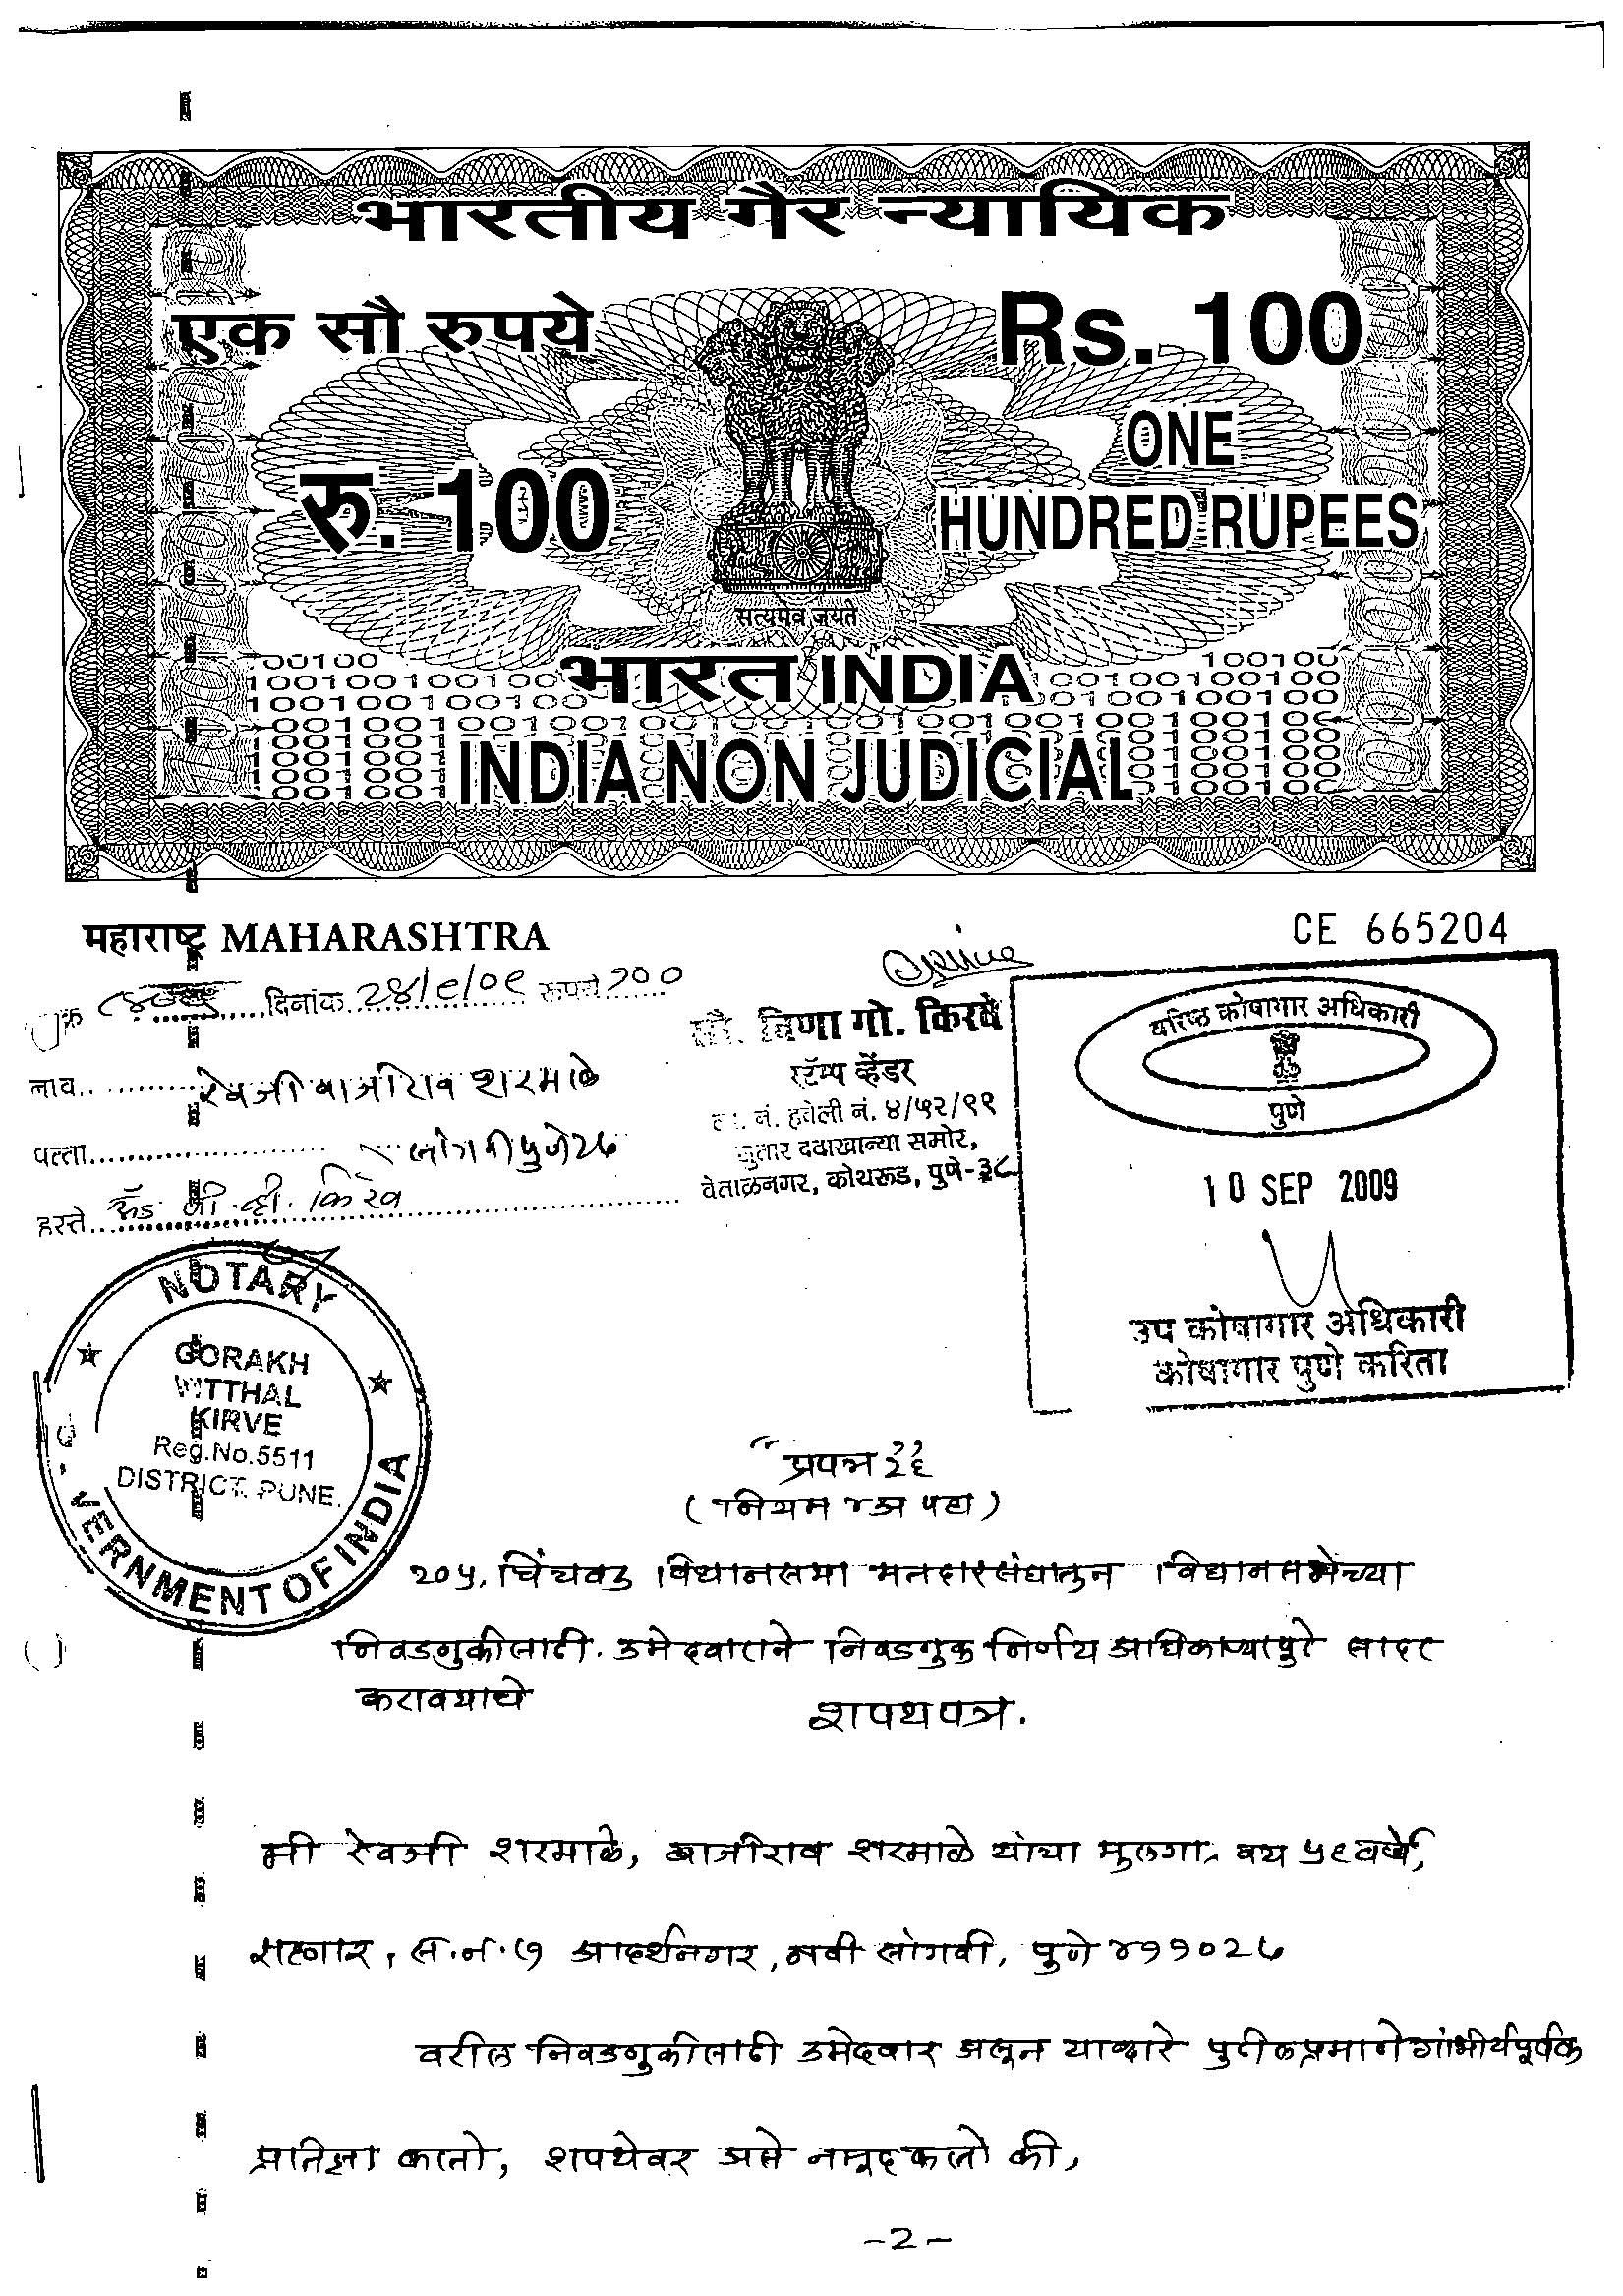 भारतीय गैर न्यायिक
एक सौ रुपये
Rs. 100
रु. 100
ONE
HUNDRED RUPEES
सत्यमेव जयते
भारत INDIA
INDIA NON JUDICIAL
महाराष्ट्र MAHARASHTRA
CE 665204
क्र दिनांक 24/9/09 रुपये 100
नाव रेवजी बाजीराव शरमाळे
पत्ता सांगवी पुणे 27
हस्ते अॅड जी. व्ही. किरवे
सौ. विणा गो. किरवे
स्टॅम्प व्हेंडर
ला. नं. हवेली नं. ४/५२/९९
सुतार दवाखान्या समोर,
वेताळनगर, कोथरूड, पुणे-३८
वरिष्ठ कोषागार अधिकारी
पुणे
10 SEP 2009
उप कोषागार अधिकारी
कोषागार पुणे करिता
NOTARY
GORAKH
WITTHAL
KIRVE
Reg.No.5511
DISTRICT. PUNE.
GOVERNMENT OF INDIA
"प्रपत्र २६"
(नियम ४अ पहा)
२०५, चिंचवड विधानसभा मतदारसंघातून विधानसभेच्या
निवडणुकीसाठी. उमेदवाराने निवडणुक निर्णय अधिकाऱ्यापुढे सादर
करावयाचे
शपथपत्र.
मी रेवजी शरमाळे, बाजीराव शरमाळे यांचा मुलगा, वय ५९ वर्षे,
राहणार, स.नं. ७ आदर्शनगर, नवी सांगवी, पुणे ४११०२७
वरील निवडणुकीसाठी उमेदवार असून याद्वारे पुढीलप्रमाणे गांभीर्यपूर्वक
प्रतिज्ञा करतो, शपथेवर असे नमूद करतो की,
-2-